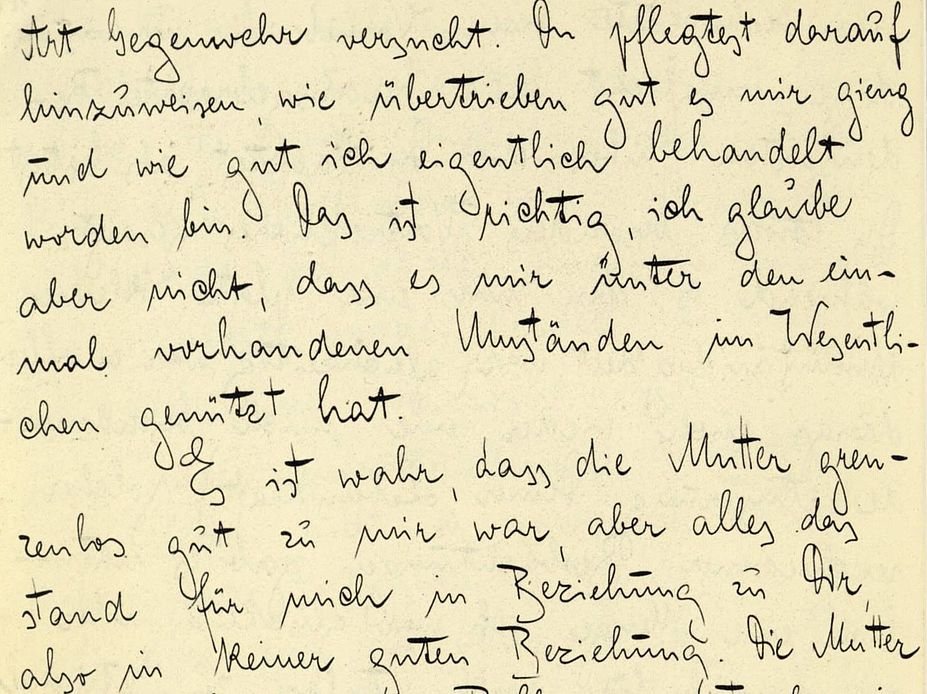 Art Gegenwehr versucht. Du pflegtest darauf
hinzuweisen, wie übertrieben gut es mir gieng
und wie gut ich eigentlich behandelt
worden bin. Das ist richtig, ich glaube
aber nicht, dass es mir unter den ein-
mal vorhandenen Umständen im Wesentli-
chen genützt hat.
Es ist wahr, dass die Mutter gren-
zenlos gut zu mir war, aber alles das
stand für mich in Beziehung zu Dir,
also in keiner guten Beziehung. Die Mutter